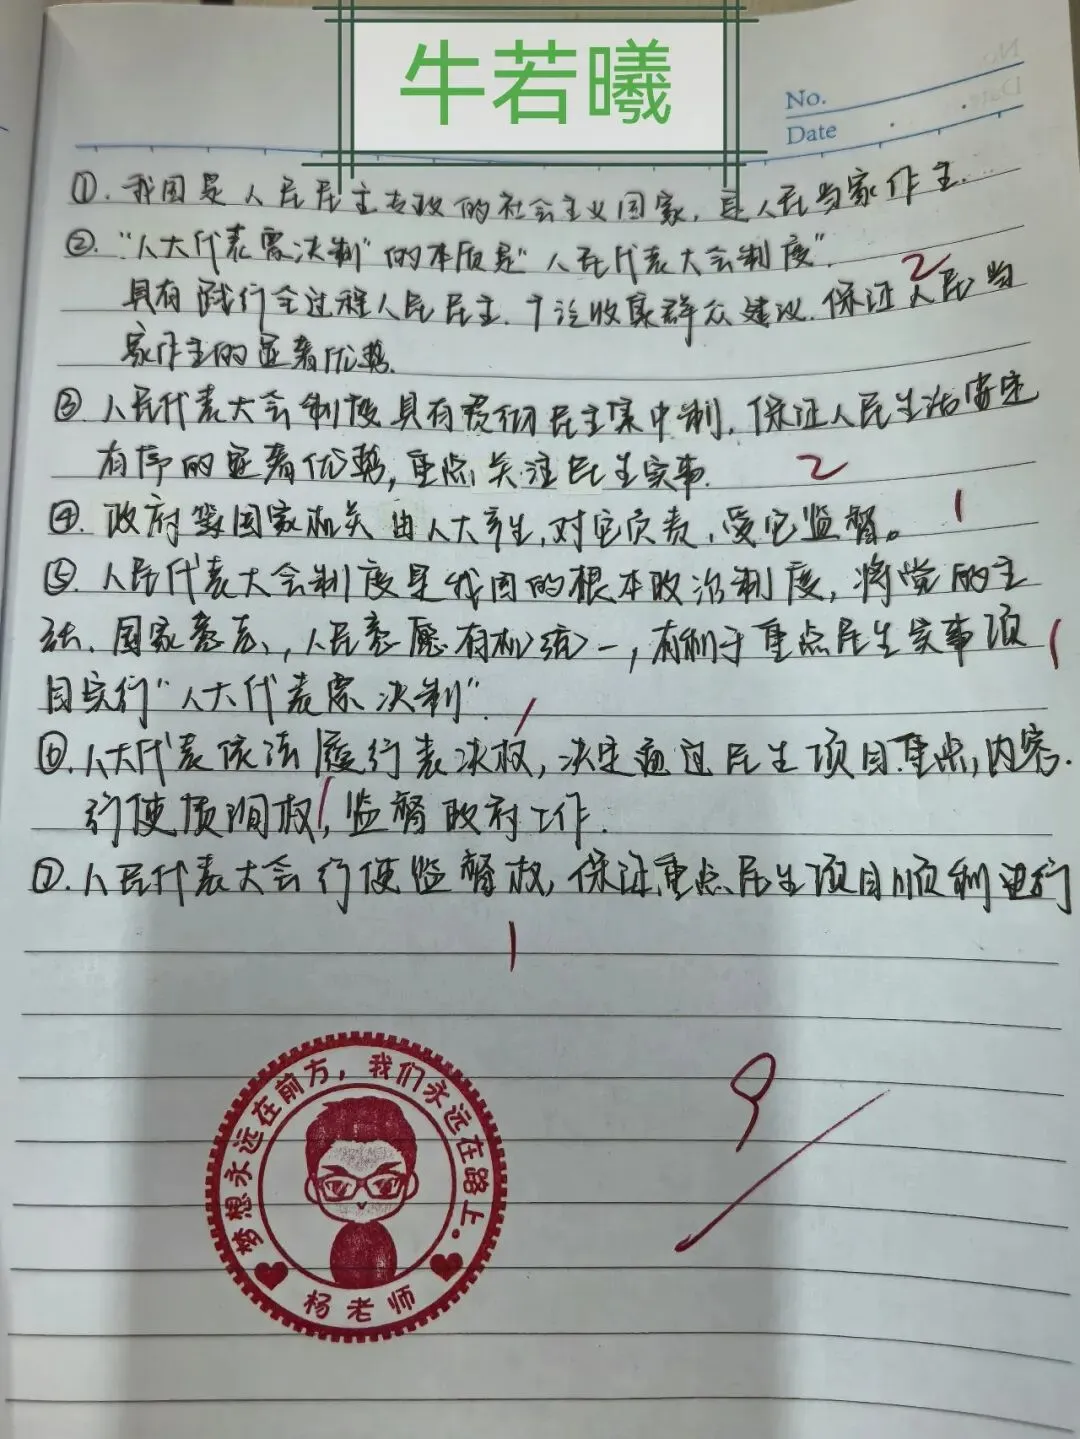 牛若曦
No.
Date
①. 我国是人民民主专政的社会主义国家, 是人民当家作主.
②. "人大代表票决制"的本质是"人民代表大会制度".
2
具有践行全过程人民民主. 广泛收集群众建议. 保证人民当
家作主的显著优势.
③. 人民代表大会制度具有贯彻民主集中制, 保证人民生活安定
有序的显著优势, 重点关注民生实事.
2
④. 政府等国家机关由人大产生, 对它负责, 受它监督。
1
⑤. 人民代表大会制度是我国的根本政治制度, 将党的主
张、国家意志、, 人民意愿有机统一, 有利于重点民生实事项
1
目实行"人大代表票决制".
⑥. 人大代表依法履行表决权, 决定通过民生项目重点, 内容.
行使质询权, 监督政府工作.
⑦. 人民代表大会行使监督权, 保证重点民生项目顺利进行
1
9
梦想永远在前方，我们永远在路上。
杨老师